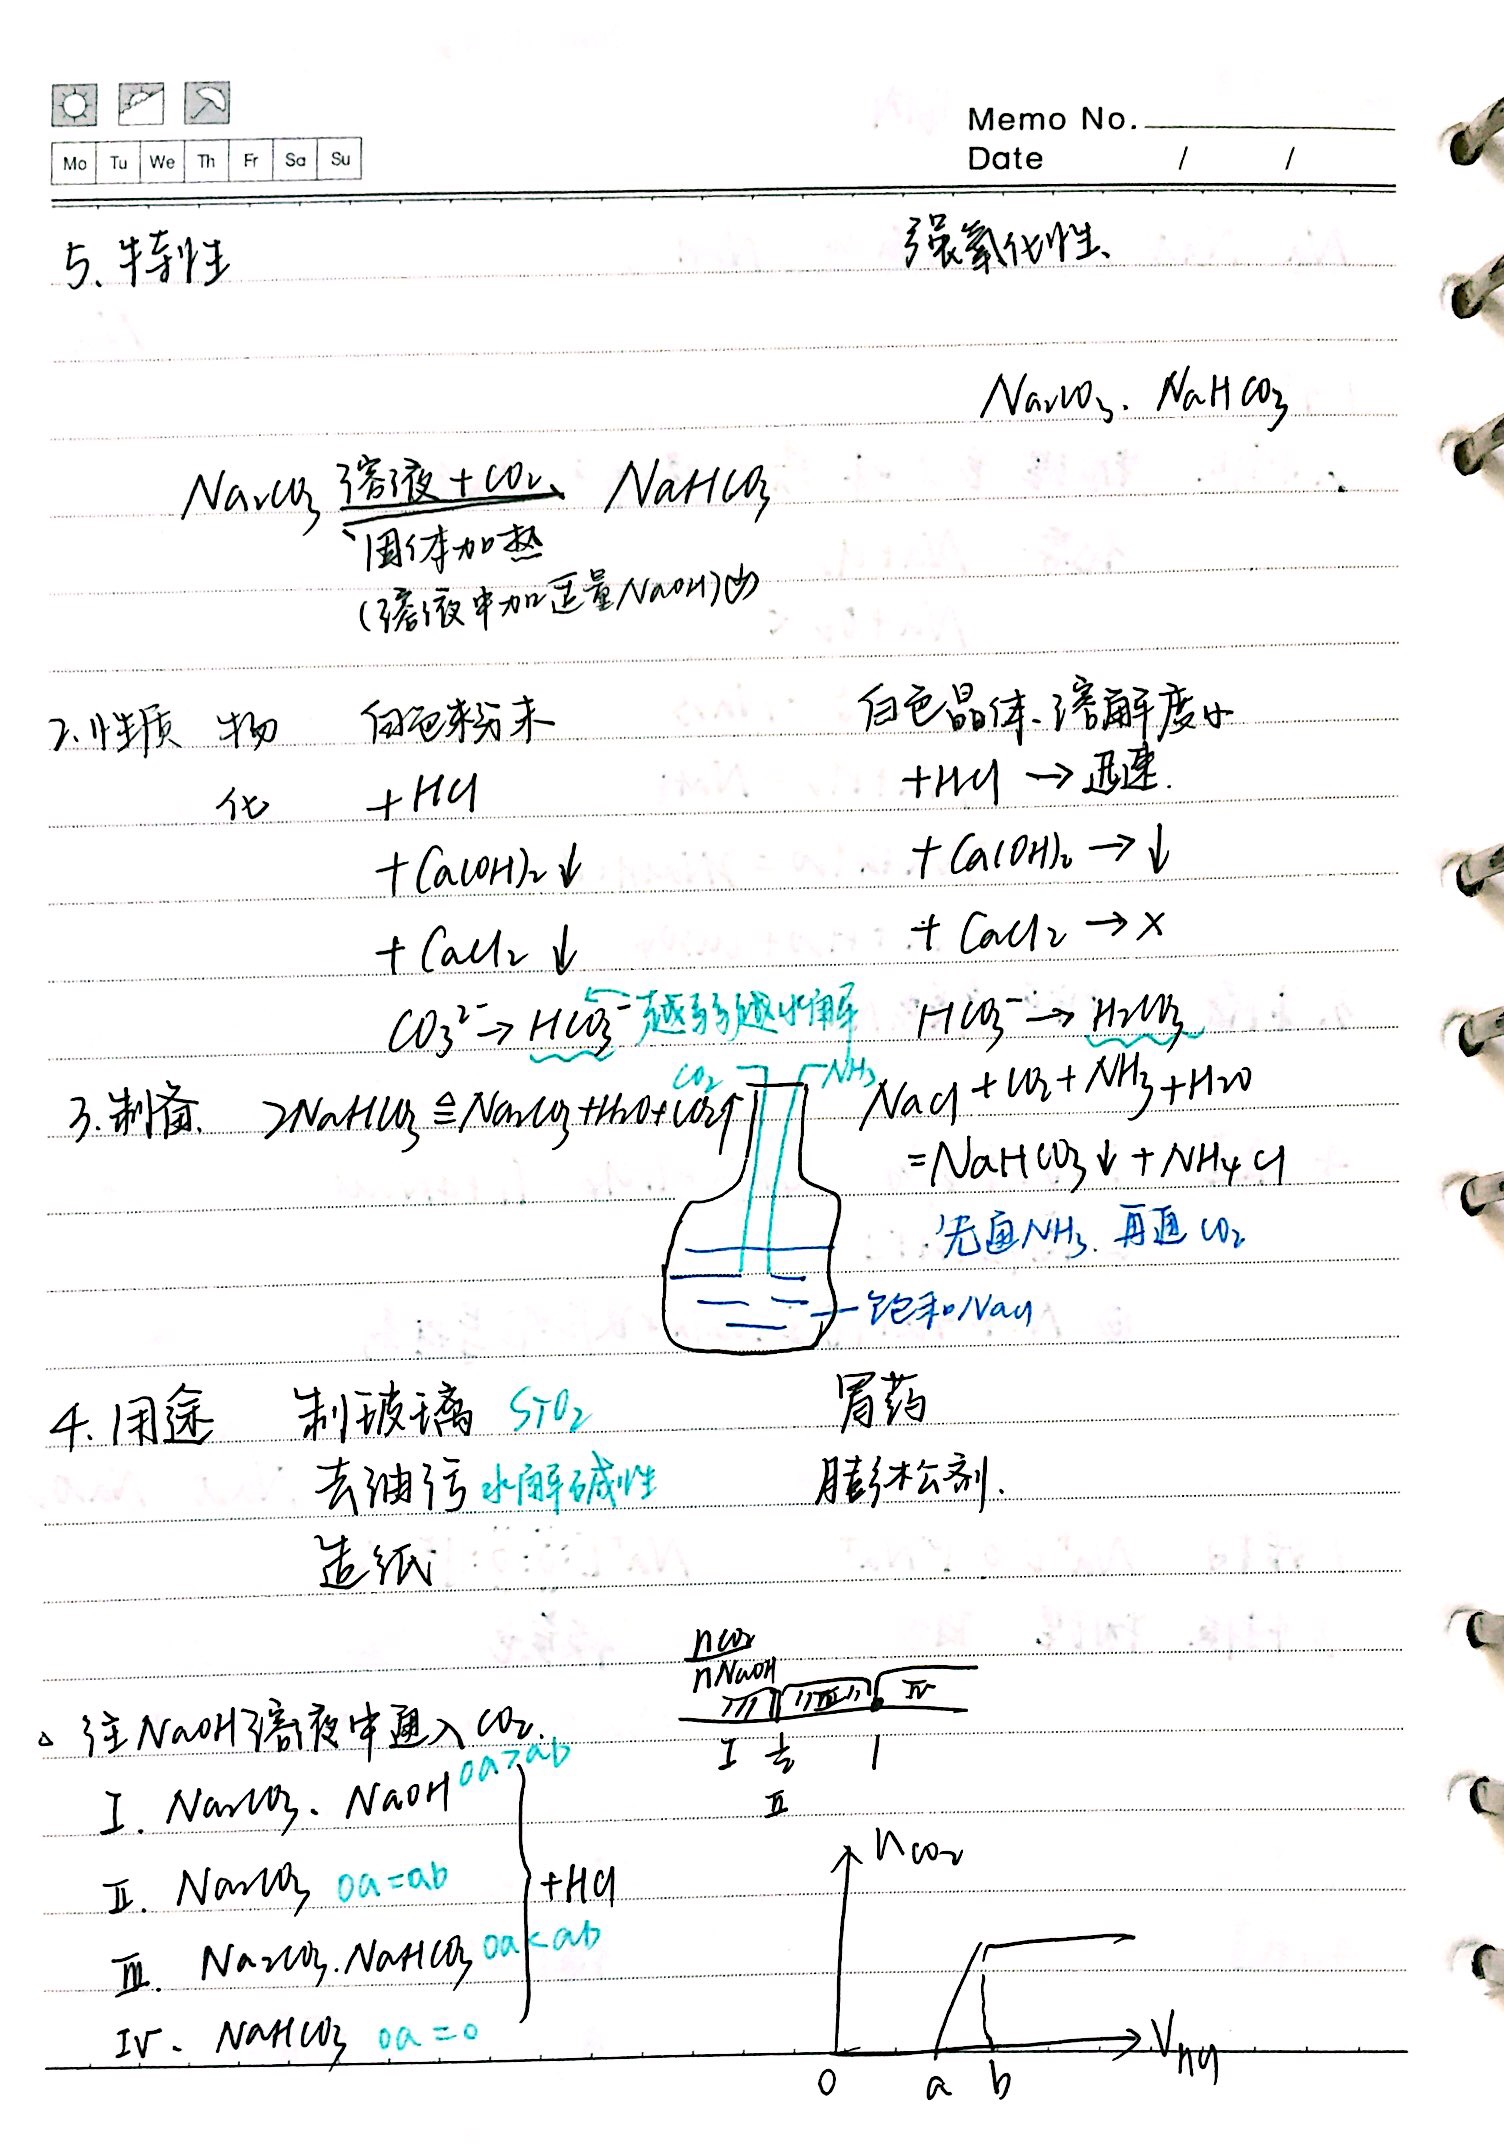 Memo No.
Mo Tu We Th Fr Sa Su
Date / /
5. 特性 强氧化性、
Na₂CO₃、NaHCO₃
Na₂CO₃ 溶液+CO₂ NaHCO₃
固体加热
(溶液中加适量NaOH)
2.性质 物 白色粉末 白色晶体、溶解度小
化 +HCl +HCl → 迅速.
+Ca(OH)₂ ↓ +Ca(OH)₂ → ↓
+CaCl₂ ↓ +CaCl₂ → ×
CO₃²⁻ → HCO₃⁻ 越弱越水解 HCO₃⁻ → H₂CO₃
CO₂ NH₃
3.制备. 2NaHCO₃ ≙ Na₂CO₃+H₂O+CO₂↑ NaCl+CO₂+NH₃+H₂O
=NaHCO₃↓+NH₄Cl
先通NH₃. 再通CO₂
饱和NaCl
4.用途 制玻璃 SiO₂ 胃药
去油污 水解碱性 膨松剂.
造纸
nCO₂
nNaOH
III IV
△ 往NaOH溶液中通入CO₂.
I ½ 1
II
I. Na₂CO₃、NaOH oa>ab
II. Na₂CO₃ oa=ab +HCl
III. Na₂CO₃.NaHCO₃ oa<ab
IV. NaHCO₃ oa=0
nCO₂
VHCl
0 a b